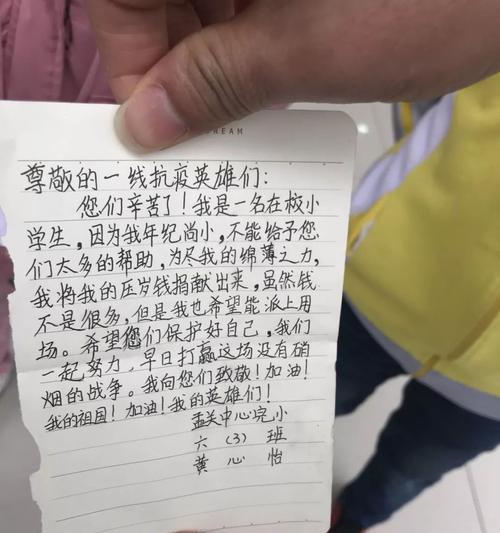 REAM
尊敬的一线抗疫英雄们:
您们辛苦了!我是一名在校小
学生,因为我年纪尚小,不能给予您
们太多的帮助,为尽我的绵薄之力,
我将我的压岁钱捐献出来,虽然钱
不是很多,但是我也希望能派上用
场。希望您们保护好自己,我们
一起努力,早日打赢这场没有硝
烟的战争。我向您们致敬!加油!
我的祖国!加油!我的英雄们!
孟关中心完小
六(3)班
黄心怡